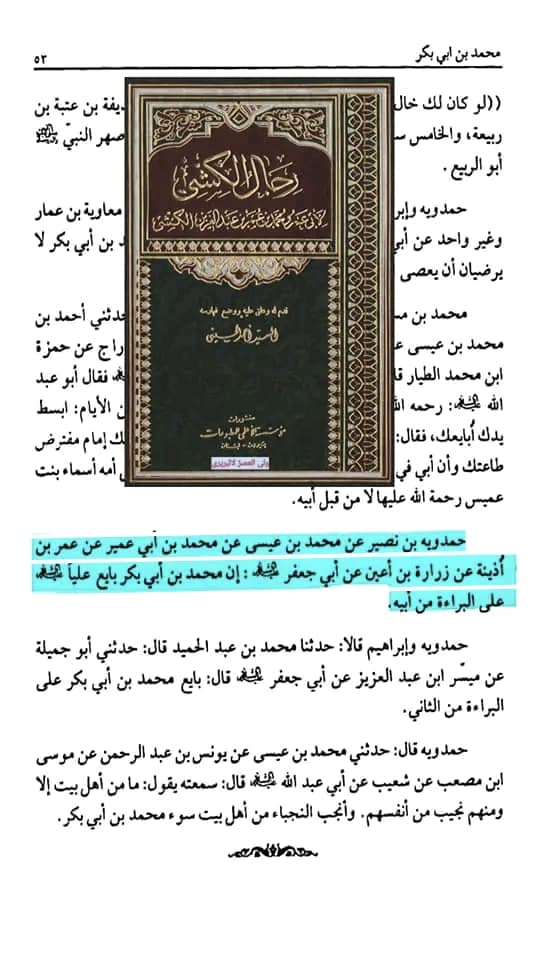 محمد بن ابي بكر
٥٣
((لو كان لك خال
ذيفة بن عتبة بن
ربيعة، والخامس
صهر النبيّ
أبو الربيع .
حمدويه وإبر
معاوية بن عمار
وغير واحد عن أبي
د بن أبي بكر لا
يرضيان أن يعصى
محمد بن مس
حدثني أحمد بن
محمد بن عيسى عـ
راج عن حمزة
ابن محمد الطيار قا
فقال أبو عبد
الله : رحمه الله
ن الأيام: ابسط
يدك أُبايعك، فقال:
ك إمام مفترض
طاعتك وأن أبي في
أمه أسماء بنت
عميس رحمة الله عليها لا من قبل أبيه.
رجال الكشي
لأبي عمرو محمد بن عمر بن عبد العزيز الكشي
قدم له وعلق عليه ووضع فهارسه
السيد أحمد الحسيني
منشورات
مؤسسة الأعلمي للمطبوعات
بيروت - لبنان
ولي العصر لائبریری
حمدويه بن نصير عن محمد بن عيسى عن محمد بن أبي عمير عن عمر بن
أُذينة عن زرارة بن أعين عن أبي جعفر : إن محمد بن أبي بكر بايع علياً
على البراءة من أبيه.
حمدويه وإبراهيم قالا: حدثنا محمد بن عبد الحميد قال: حدثني أبو جميلة
عن ميسّر ابن عبد العزيز عن أبي جعفر قال: بايع محمد بن أبي بكر على
البراءة من الثاني.
حمدويه قال: حدثني محمد بن عيسى عن يونس بن عبد الرحمن عن موسى
ابن مصعب عن شعيب عن أبي عبد الله قال: سمعته يقول: ما من أهل بيت إلا
ومنهم نجيب من أنفسهم. وأنجب النجباء من أهل بيت سوء محمد بن أبي بكر.